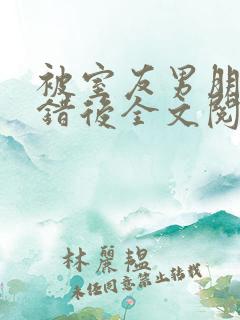 被室友男朋
错后全文阅
林麗韞
未任同意禁止转载